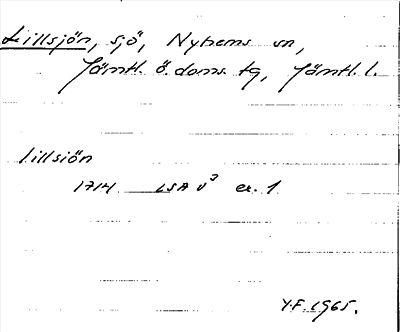 Lillsjön, sjö, Nyhems sn,
Jämtl. ö. doms. tg, Jämtl. l.
Lillsiön
1714 LSA U³ ex. 1
Y.F. 1965.